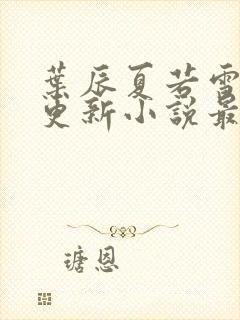 葉辰夏若雪
更新小說最
瑭恩